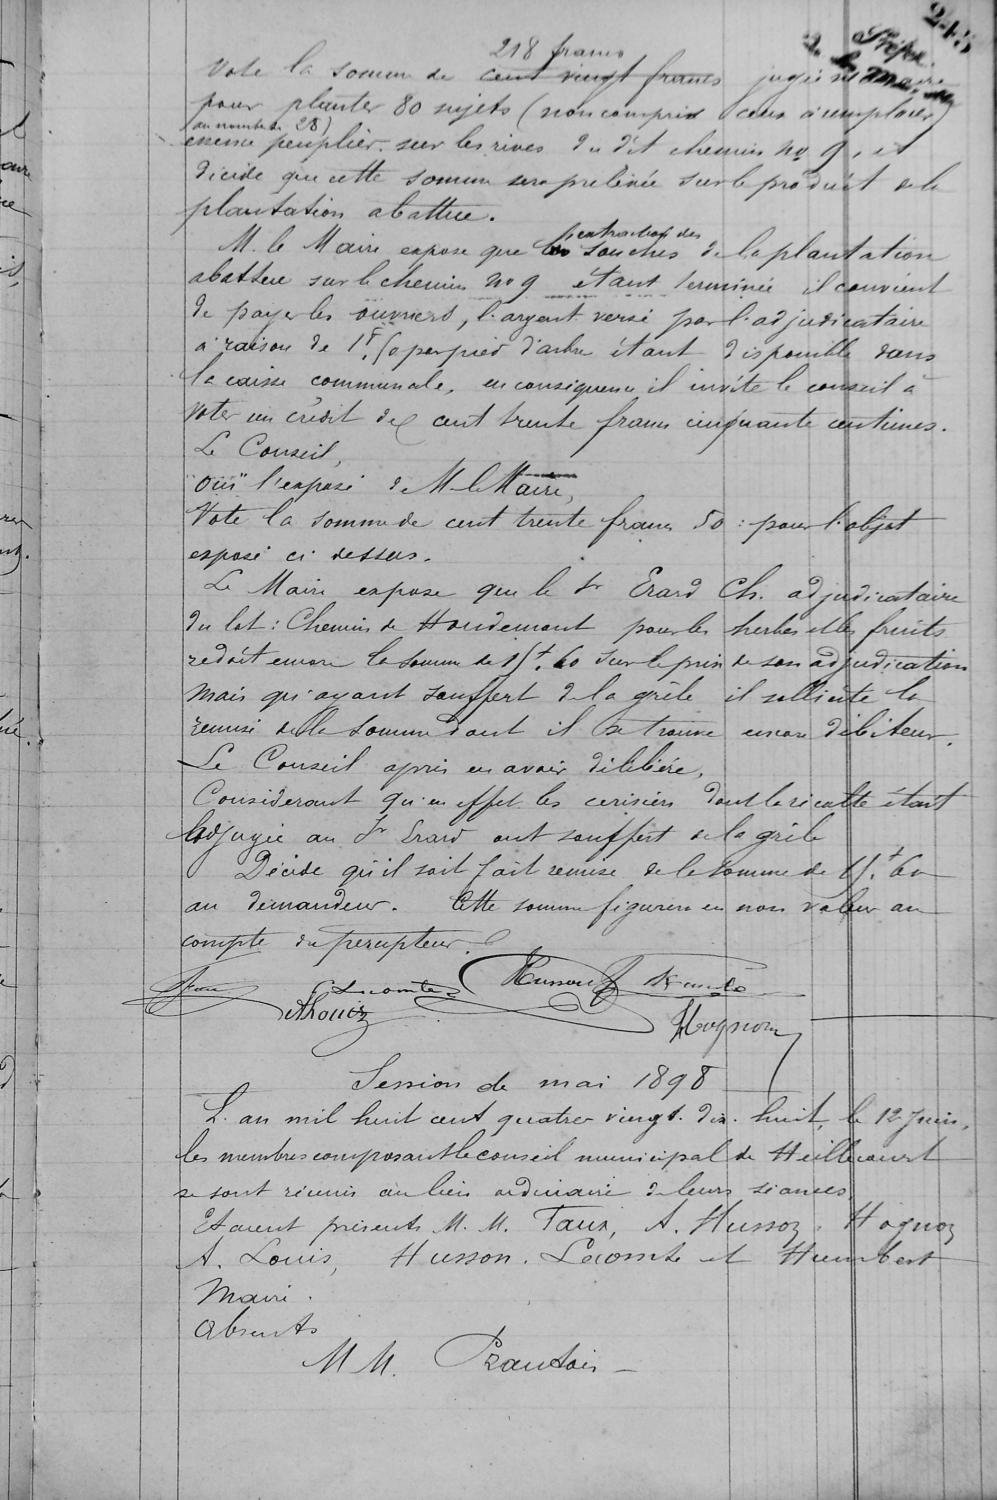 245
Préfet
218 francs
Vote la somme de cent vingt francs jugée nécessaire
pour planter 80 sujets (non compris ceux à employer
au nombre de 28)
essence peuplier sur les rives du dit chemin no 9, et
décide que cette somme sera prélevée sur le produit de la
plantation abattue.
l'extraction des
M. le Maire expose que les souches de la plantation
abattue sur le chemin no 9 étant terminée il convient
de payer les ouvriers, l'argent versé par l'adjudicataire
à raison de 1f,50 par pied d'arbre étant disponible dans
la caisse communale, en conséquence il invite le conseil à
voter un crédit de cent trente francs cinquante centimes.
Le Conseil,
ouï l'exposé de M. le Maire,
Vote la somme de cent trente francs 50 : pour l'objet
exposé ci dessus.
Le Maire expose que le Sr Erard Ch. adjudicataire
du lot : Chemin de Houdemont pour les herbes et les fruits
redoit encore la somme de 15f.60 sur le prix de son adjudication
mais qu'ayant souffert de la grêle il sollicite la
remise de la somme dont il se trouve encore débiteur.
Le Conseil après en avoir délibéré,
Considerant qu'en effet les cerisiers dont la récolte était
adjugée au Sr Erard ont souffert de la grêle
Décide qu'il soit fait remise de la somme de 15f.60
au demandeur. Cette somme figurera en non valeur au
compte du percepteur.
Lecomte Husson
A Louis Hognon
Session de mai 1898
L'an mil huit cent quatre vingt dix huit, le 12 Juin,
les membres composant le conseil municipal de Heillecourt
se sont réunis au lieu ordinaire de leurs séances,
Etaient présents M. M. Taux, A. Husson, Hognon
A. Louis, Husson, Lecomte et Humbert
Maire.
Absents
M M. Prautois